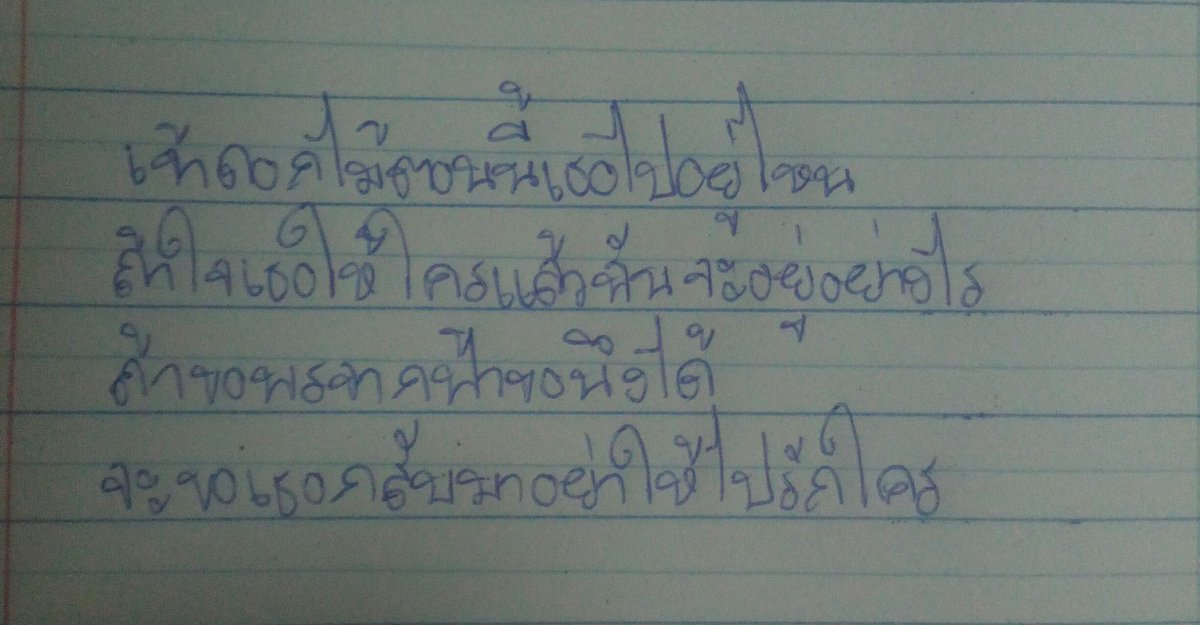 เจ้าดอกไม้ตอนนี้เธอไปอยู่ไหน
ถ้าใจเธอให้ใครแล้วฉันจะอยู่อย่างไร
ถ้าขอพรจากฟ้าขอนึงได้
จะขอเธอกลับมาอย่าให้ไปรักใคร